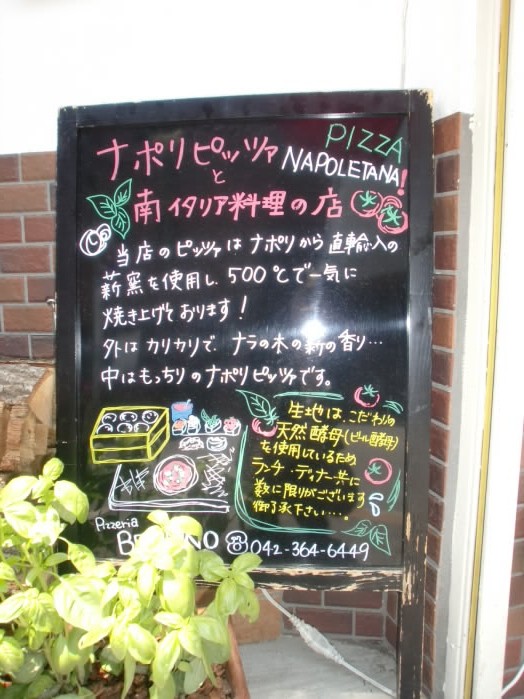 ナポリピッツァ
PIZZA
NAPOLETANA!
と
南イタリア料理の店
当店のピッツァはナポリから直輸入の
薪窯を使用し、500℃で一気に
焼き上げております!
外はカリカリで、ナラの木の薪の香り…
中はもっちりのナポリピッツァです。
生地は、こだわりの
天然酵母(ビール酵母)
を使用しているため
ランチ・ディナー共に
数に限りがございます
御了承下さい…。
Pizzeria
☎042-364-6449